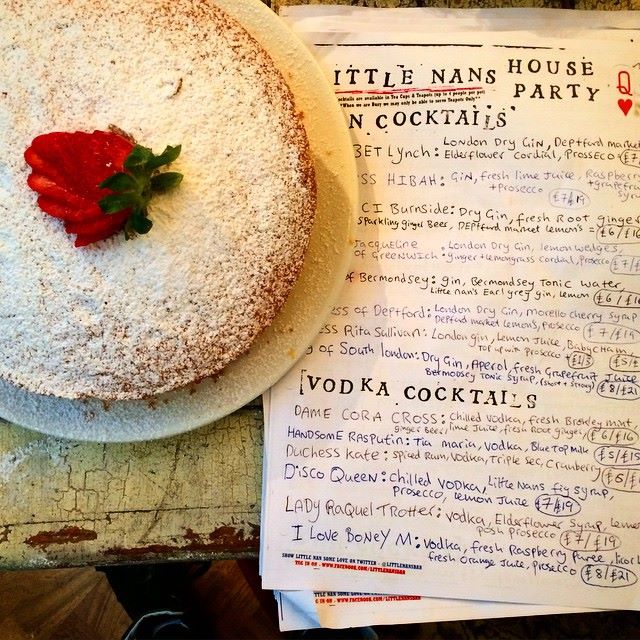 LITTLE NANS HOUSE
PARTY
Cocktails are available in Tea Cups & Teapots (up to 4 people per pot)
*When we are Busy we may only be able to serve Teapots Only**
Q
N COCKTAILS
BET Lynch: London Dry Gin, Deptford market
Elderflower cordial, Prossecco £7
SS HIBAH: GIN, fresh lime Juice, Raspberry
+ prosecco £7/£19 + grapefruit syr
CI Burnside: Dry Gin, fresh Root ginger
Sparkling ginger Beer, Deptford market lemon's = £6/£16
Jacqueline of Greenwich: London Dry Gin, lemon wedges,
ginger + lemongrass cordial, Prosecco £7/
of Bermondsey: gin, Bermondsey Tonic water,
Little nan's Earl grey gin, lemon £6/£16
ess of Deptford: London Dry Gin, morello cherry syrup
Deptford market lemon's, prosecco £7/£19
ess Rita Sullivan: London gin, Lemon Juice, Babycham
Top up wit Prosecco £5/£
g of South london: Dry Gin, Aperol, fresh Grapefruit Juice
Bermondsey Tonic Syrup, (short + strong) £8/£21
[VODKA COCKTAILS
DAME CORA CROSS: chilled vodka, fresh Brokley mint,
ginger Beer, lime Juice, fresh Root ginger, £6/£16
HANDSOME RASPUTIN: Tia maria, vodka, Blue Top Milk £5/£15
Duchess Kate: spiced Rum, Vodka, Triple Sec, Cranberry £6/£
Disco Queen: chilled VODKA, Little Nans fig syrup,
Prosecco, lemon Juice £7/£19
LADY RaQuel Trotter: vodka, Elderflower Syrup, Lemon
posh Prosecco £7/£19
I Love Boney M: vodka, fresh Raspberry Puree,
fresh Orange Juice, prosecco £8/£21
SHOW LITTLE NAN SOME LOVE ON TWITTER - @LITTLENANSBAR
TAG IN ON - WWW.FACEBOOK.COM/LITTLENANSBAR
WWW.FACEBOOK.COM/LITTLENANSBAR